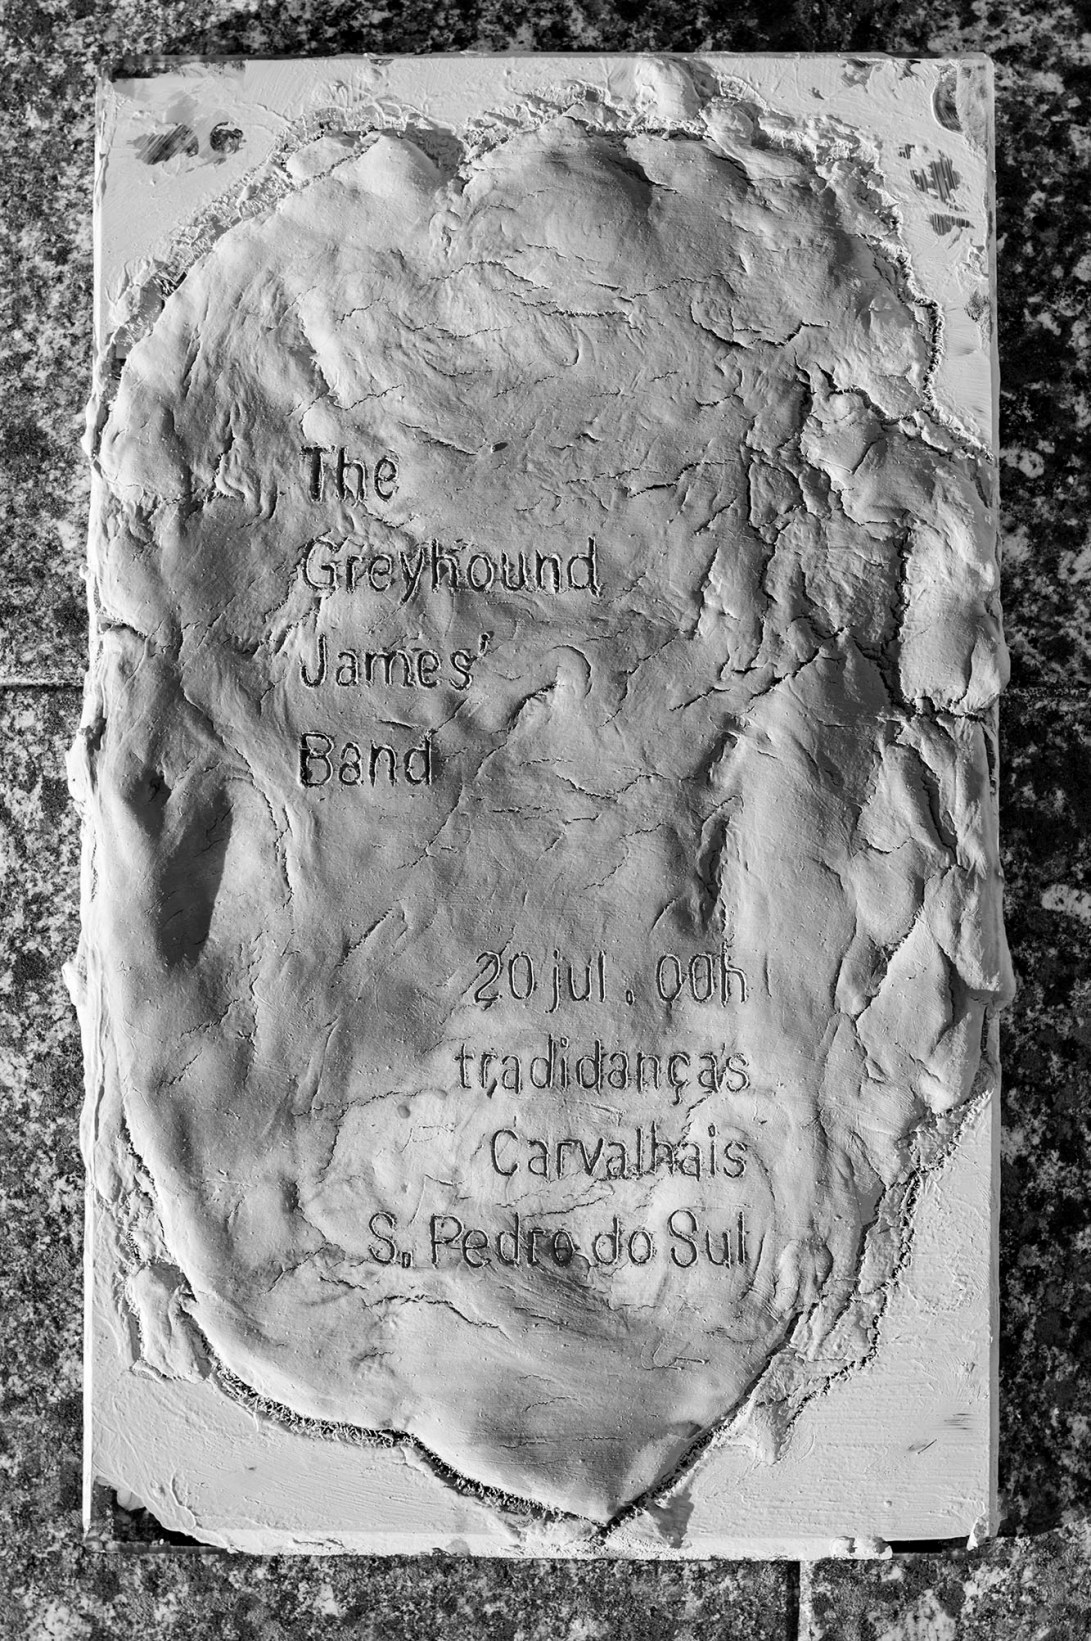 The
Greyhound
James'
Band
20 jul. 00h
tradidanças
Carvalhais
S. Pedro do Sul